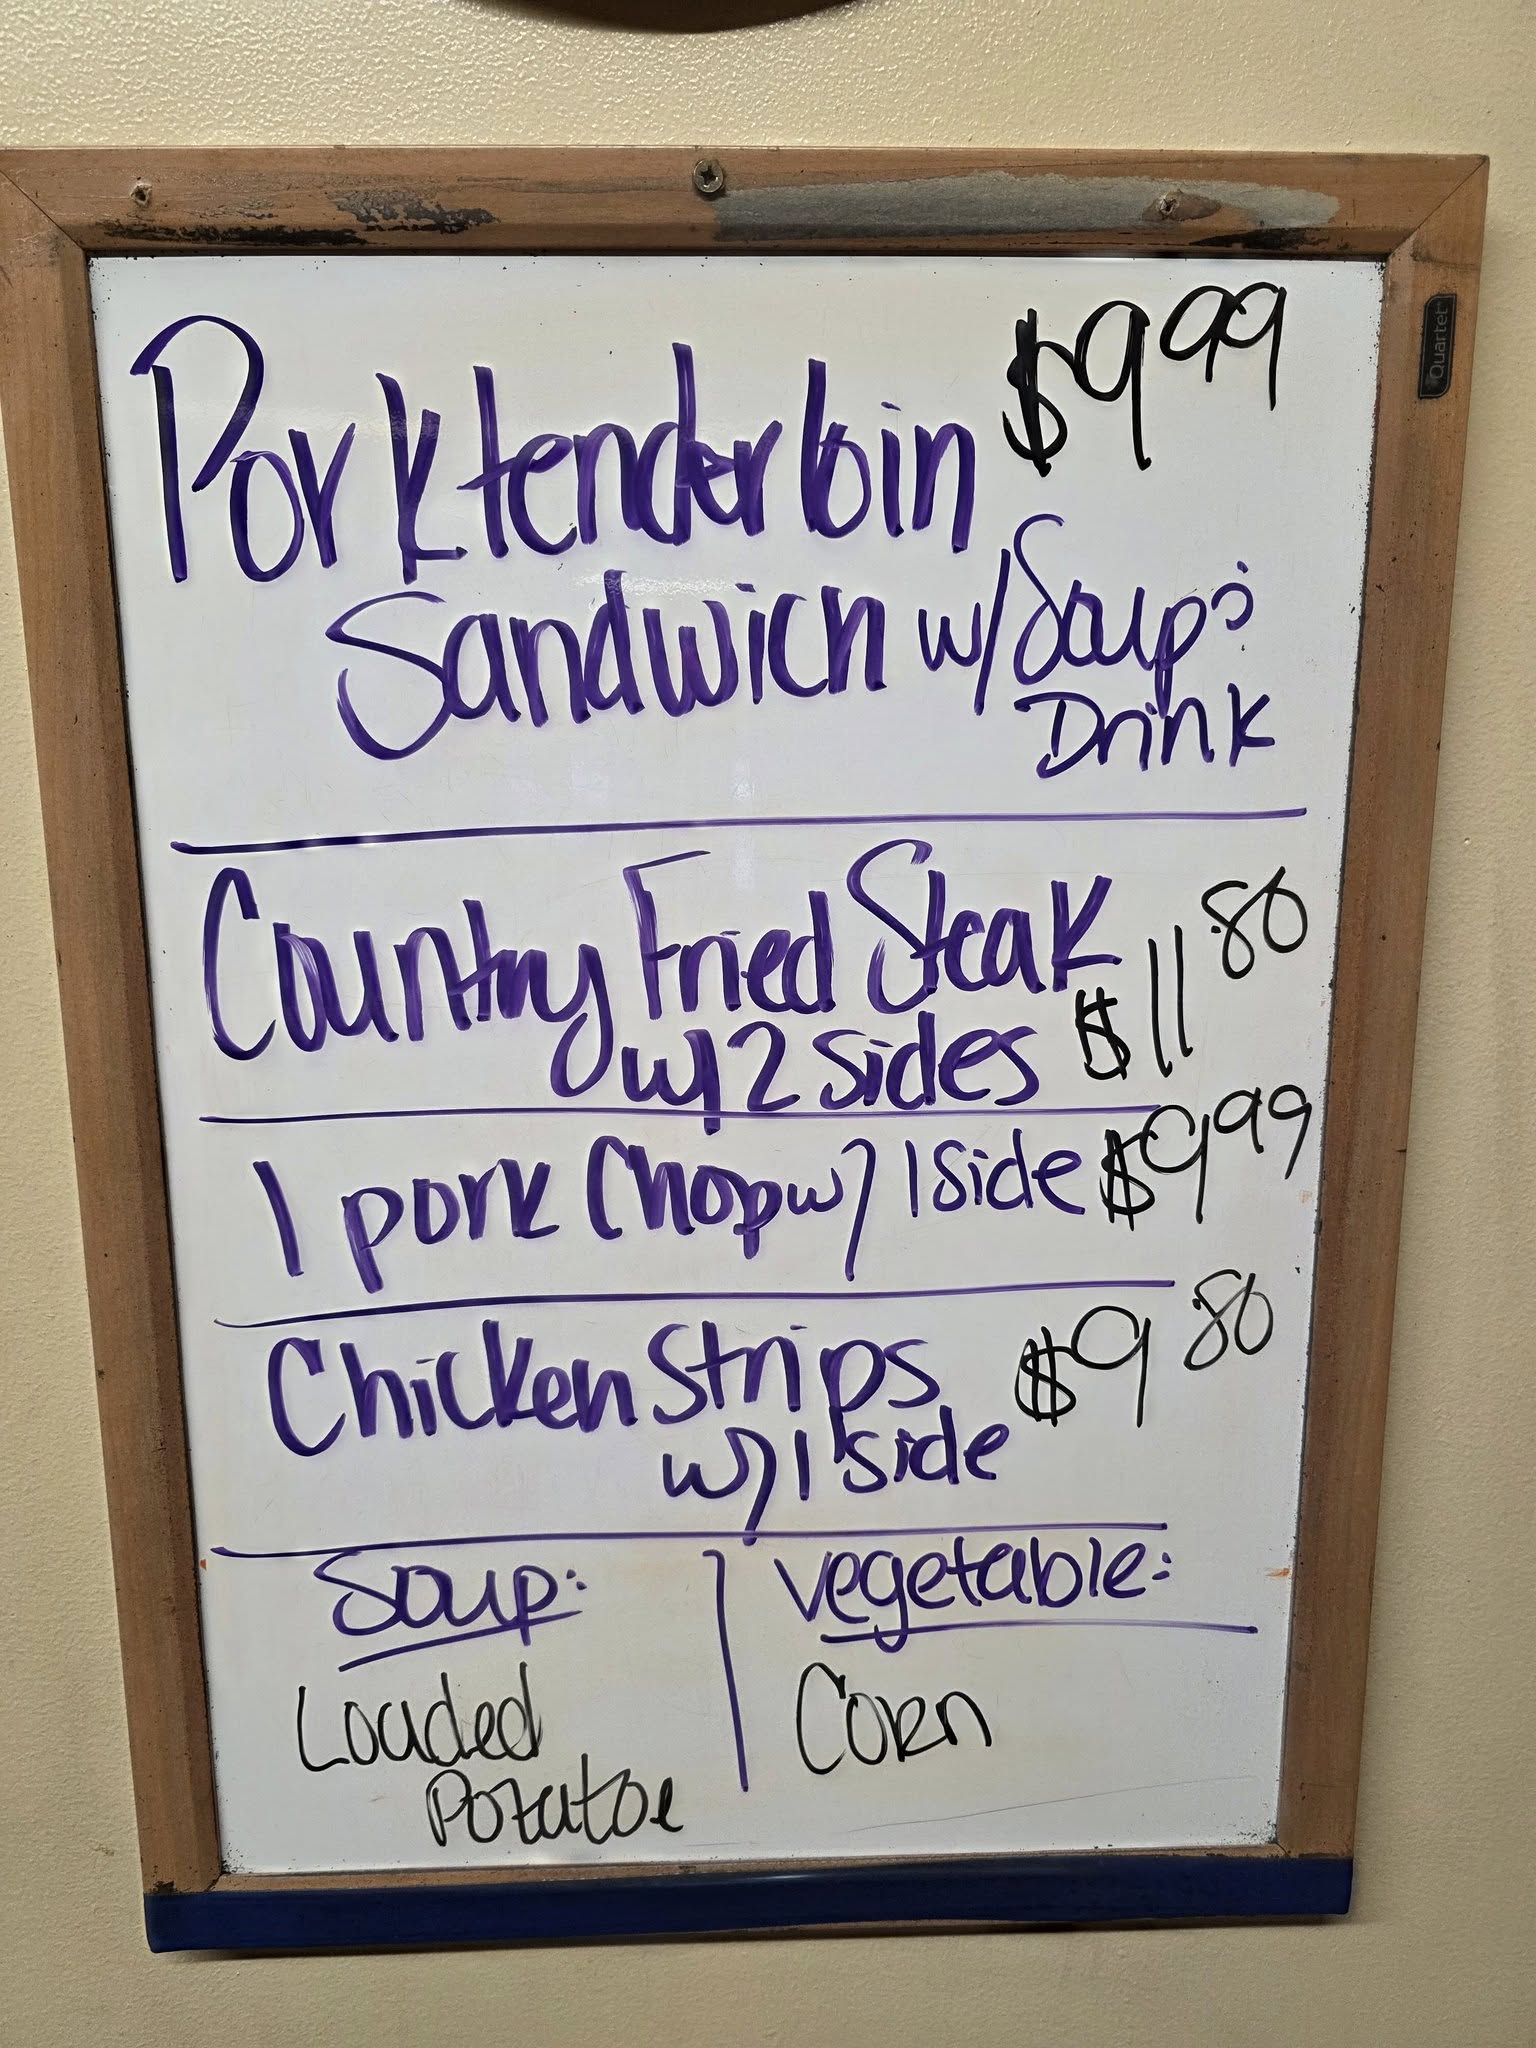 Pork tenderloin $9.99
Sandwich w/ Soup &
Drink
Country Fried Steak
w/ 2 sides $11.80
1 pork Chop w/ 1 side $9.99
Chicken Strips $9.80
w/ 1 side
Soup:
Loaded
Potatoe
vegetable:
Corn
Quartet